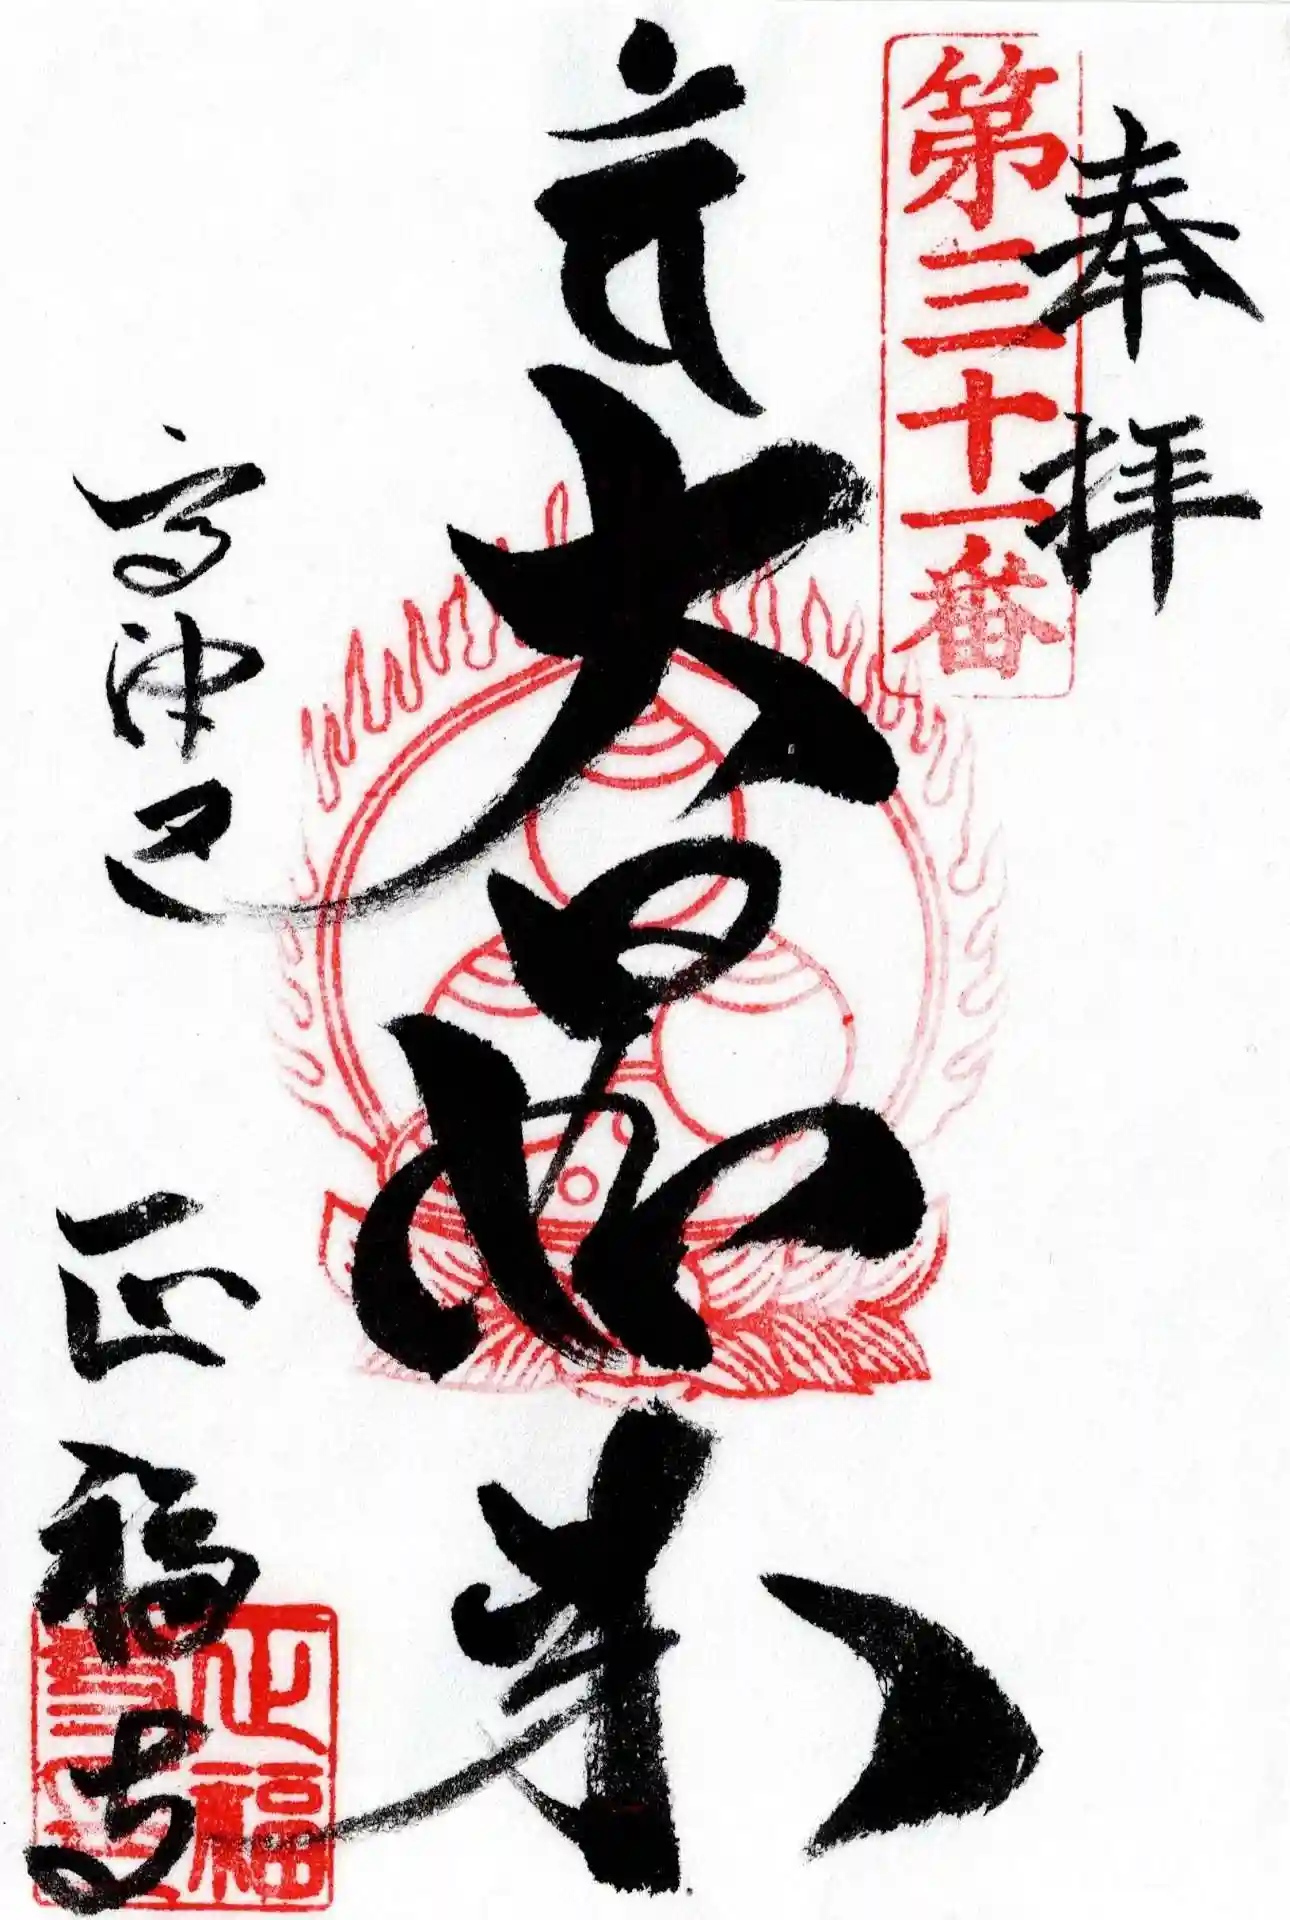 奉拝
第三十一番
大日如来
正福寺
正福